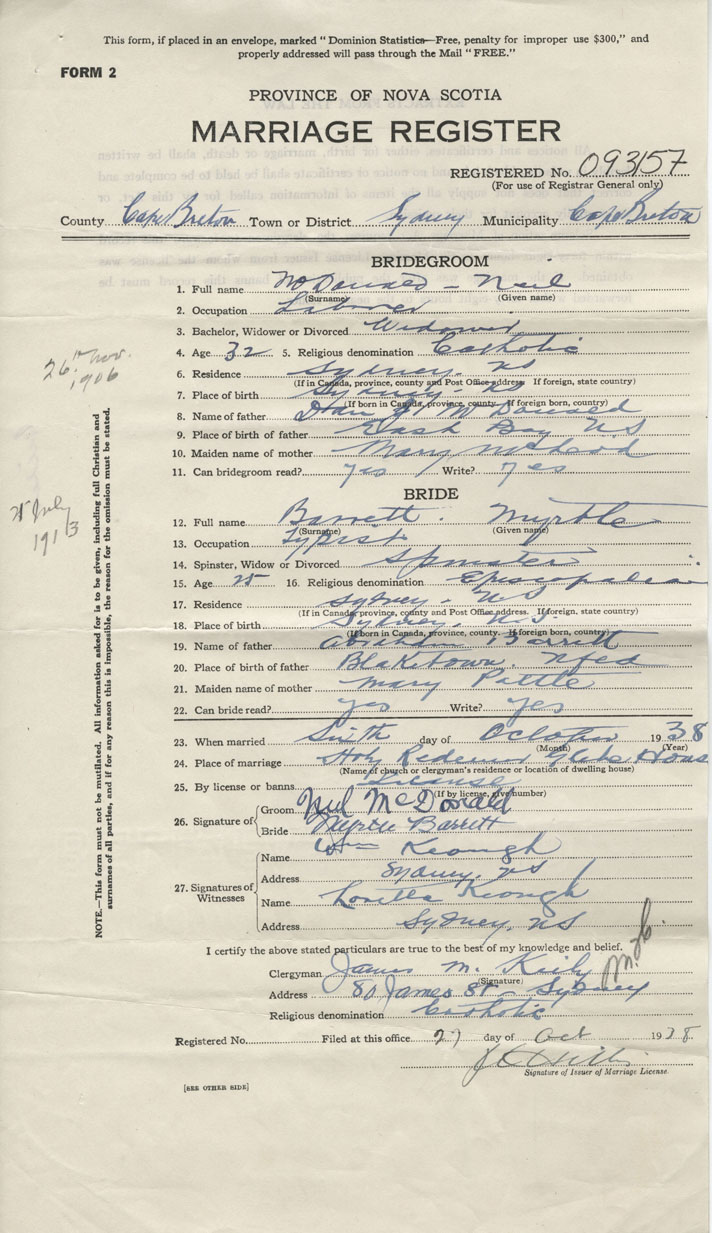 This form, if placed in an envelope, marked "Dominion Statistics—Free, penalty for improper use $300," and
properly addressed will pass through the Mail "FREE."
FORM 2
PROVINCE OF NOVA SCOTIA
MARRIAGE REGISTER
REGISTERED No. 093157
(For use of Registrar General only)
County Cape Breton Town or District Sydney Municipality Cape Breton
BRIDEGROOM
1. Full name McDonald - Neil
(Surname) (Given name)
2. Occupation Laborer
3. Bachelor, Widower or Divorced Widower
4. Age 32 5. Religious denomination Catholic
6. Residence Sydney. NS
(If in Canada, province, county and Post Office address. If foreign, state country)
7. Place of birth Sydney NS
(If born in Canada, province, county. If foreign born, country)
8. Name of father Dan McDonald
9. Place of father East Bay NS
10. Maiden name of mother Mary McLeod
11. Can bridegroom read? yes Write? yes
BRIDE
12. Full name Barrett. Myrtle
(Surname) (Given name)
13. Occupation Typist
14. Spinster, Widow or Divorced Spinster
15. Age 25 16. Religious denomination Episcopalian
17. Residence Sydney. NS
(If in Canada, province, county and Post Office address. If foreign, state country)
18. Place of birth Sydney. N.S.
(If born in Canada, province, county. If foreign born, country)
19. Name of father Barrett
20. Place of birth of father Blaketown. Nfld
21. Maiden name of mother Mary
22. Can bride read? yes Write? yes
23. When married day of October 1938
(Month) (Year)
24. Place of marriage Holy Redeemer Glebe House
(Name of church or clergyman's residence or location of dwelling house)
25. By license or banns License
(If by license, give number)
26. Signature of Groom Neil McDonald
Bride Myrtle Barrett
27. Signatures of Witnesses Name Wm Keough
Address Sydney. NS
Name Loretta Keough
Address Sydney. NS
I certify the above stated particulars are true to the best of my knowledge and belief.
Clergyman James M. Kiely
(Signature)
Address 80 James St - Sydney
Religious denomination Catholic
Registered No. Filed at this office 27 day of Oct 1938.
Signature of Issuer of Marriage License.
[SEE OTHER SIDE]
26th Nov.
1906
July
1913
NOTE.—This form must not be mutilated. All information asked for is to be given, including full Christian and
surnames of all parties, and if for any reason this is impossible, the reason for the omission must be stated.